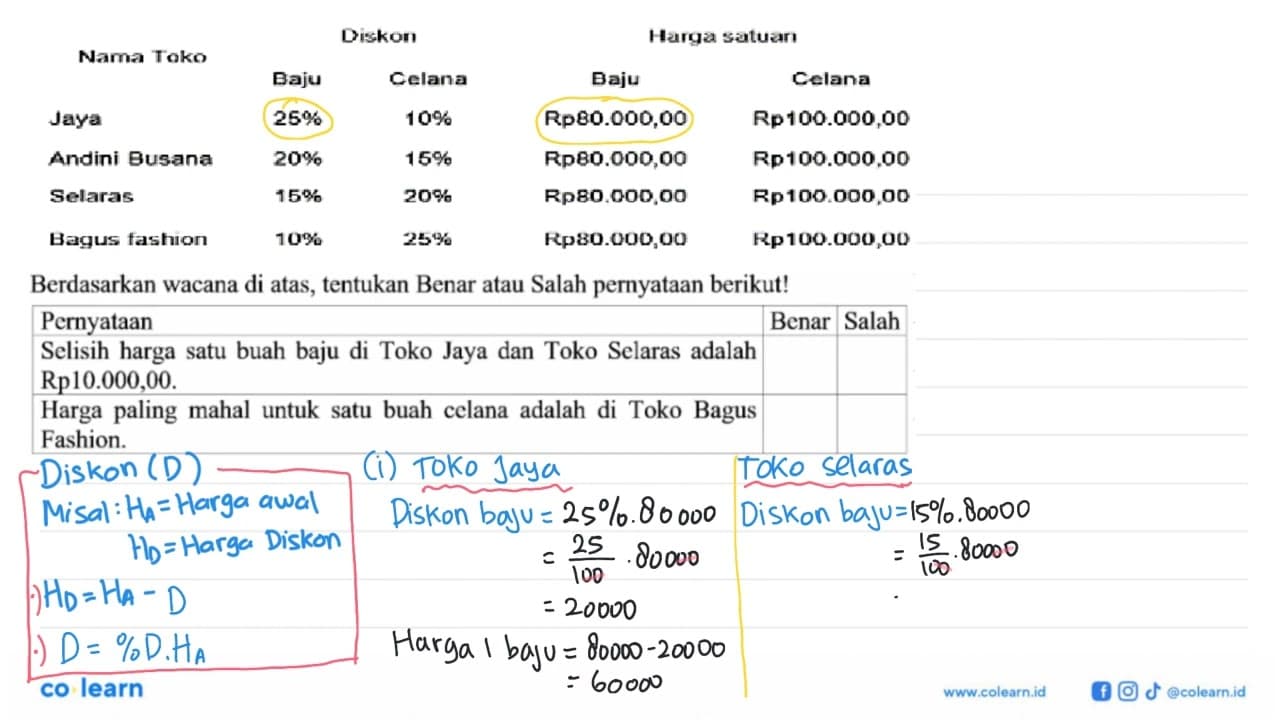 Diskon Harga satuan
Nama Toko
Baju Celana Baju Celana
Jaya 25% 10% Rp80.000,00 Rp100.000,00
Andini Busana 20% 15% Rp80.000,00 Rp100.000,00
Selaras 15% 20% Rp80.000,00 Rp100.000,00
Bagus fashion 10% 25% Rp80.000,00 Rp100.000,00
Berdasarkan wacana di atas, tentukan Benar atau Salah pernyataan berikut!
Pernyataan Benar Salah
Selisih harga satu buah baju di Toko Jaya dan Toko Selaras adalah
Rp10.000,00.
Harga paling mahal untuk satu buah celana adalah di Toko Bagus
Fashion.
Diskon (D)
Misal: HA = Harga awal
HD = Harga Diskon
·) HD = HA - D
·) D = %D.HA
(i) Toko Jaya
Diskon baju = 25%.80000
= 25/100 . 80000
= 20000
Harga 1 baju = 80000-20000
= 60000
Toko selaras
Diskon baju = 15%.80000
= 15/100 . 80000
co learn
www.colearn.id @colearn.id